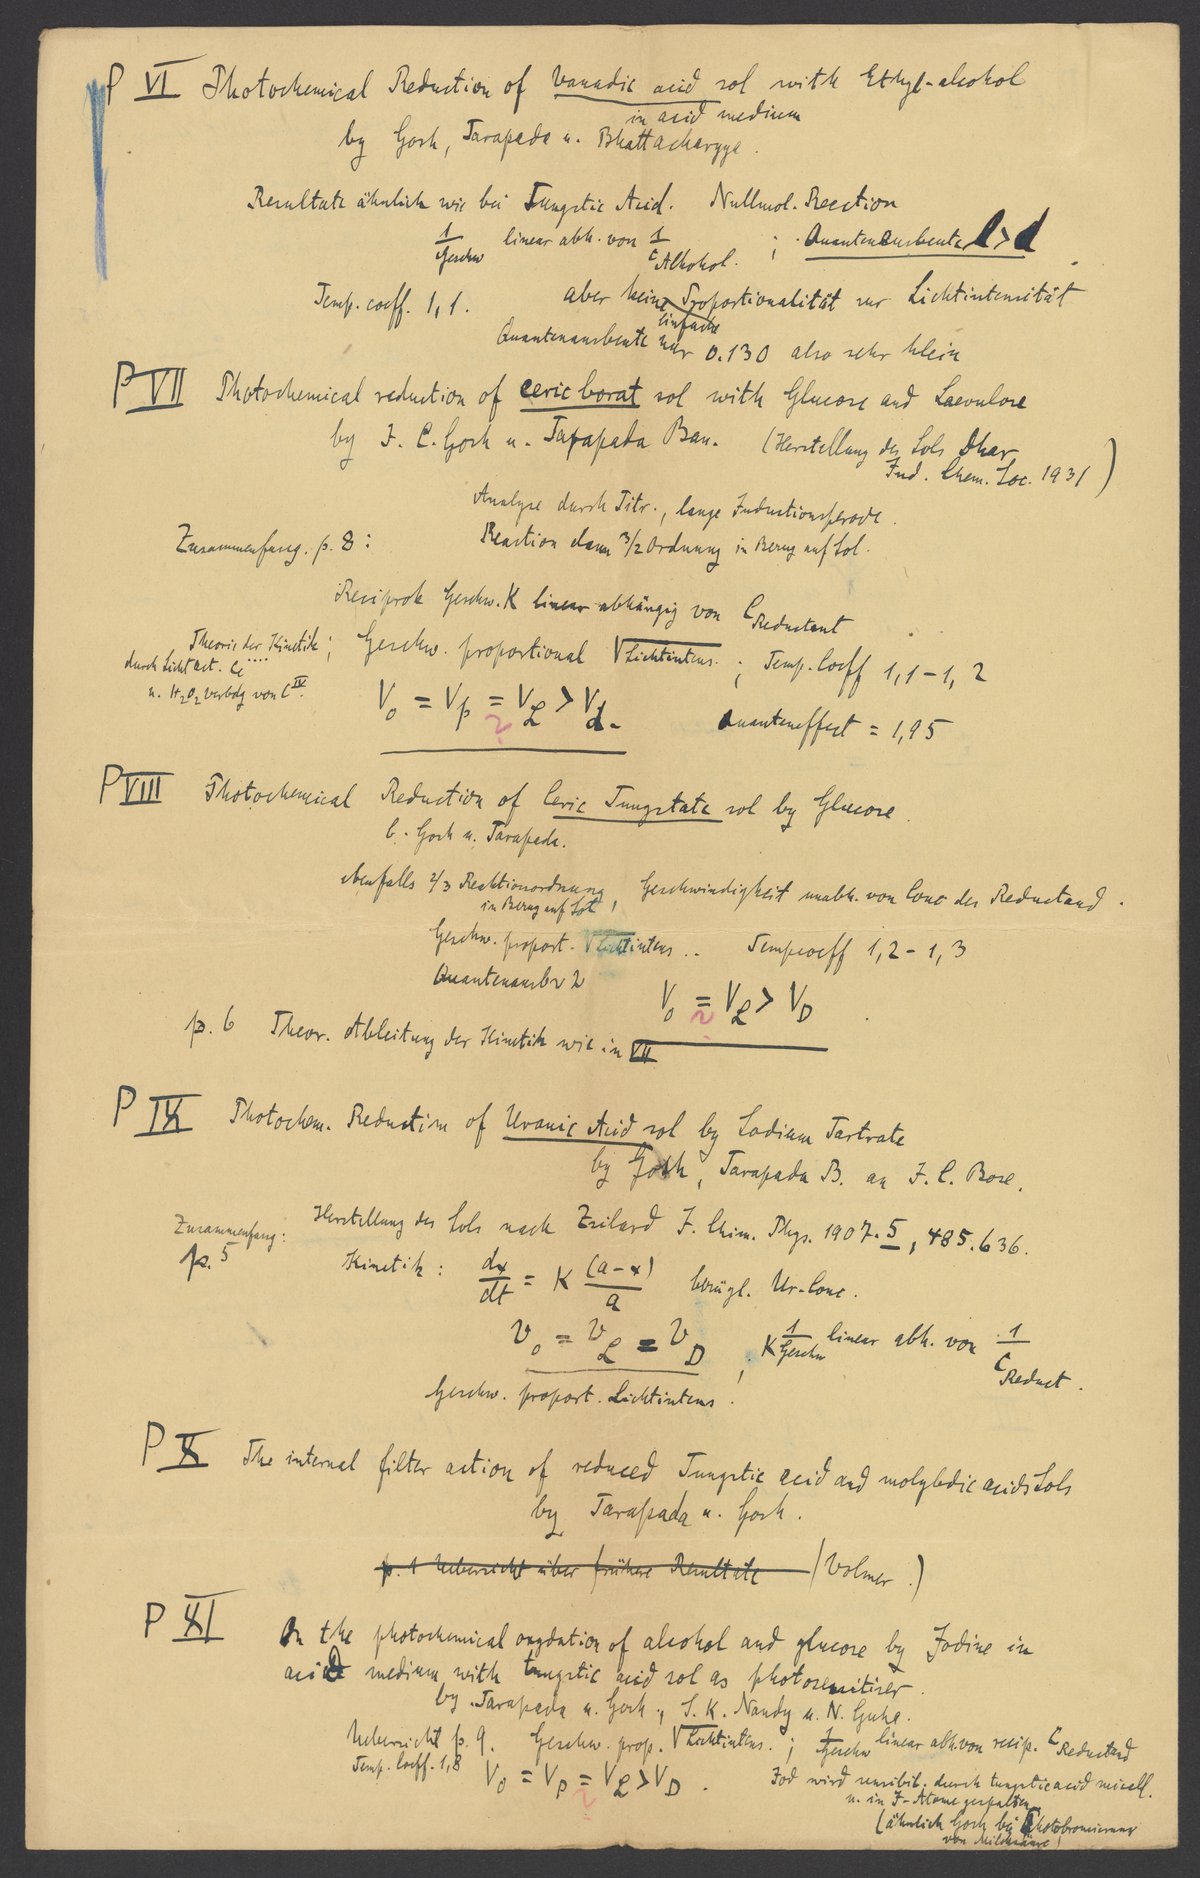 P VI Photochemical Reduction of Vanadic acid sol with Ethyl-alcohol
in acid medium
by Gosh, Tarapada u. Bhattacharyya.
Resultate ähnlich wie bei Tungstic Acid. Nullmol. Reaction
1/Geschw linear abh. von 1/C Alkohol. ; Quantenausbeute l > d
Temp. coeff. 1,1. aber keine Proportionalität zur Lichtintensität
einfache
Quantenausbeute nur 0.130 also sehr klein
P VII Photochemical reduction of ceric borat sol with Glucose and Laevulose
by J. C. Gosh u. Tarapada Ban. (Herstellung des Sols Dhar
Ind. Chem. Soc. 1931)
Analyse durch Titr., lange Inductionsperode.
Zusammenfassg. p. 8: Reaction dann 3/2 Ordnung in Bezug auf Sol.
Reciprok Geschw. K linear abhängig von C Reductant
Theorie der Kinetik; Geschw. proportional √Lichtintens. ; Temp. Coeff 1,1-1,2
durch Licht act. Ce····
u. H2O2 verbdg von C IV.
V0 = Vp = VL > Vd. Quanteneffect = 1,95
~
P VIII Photochemical Reduction of Ceric Tungstate sol by Glucose.
b. Gosh u. Tarapada.
ebenfalls 2/3 Reaktionordnung, Geschwindigkeit unabh. von Conc des Reductand.
in Bezug auf Sol
Geschw. proport. √Lichtintens.. Tempcoeff 1,2-1,3
Quantenausb 2
V0 = VL > VD
~
p. 6 Theor. Ableitung der Kinetik wie in VII
P IX Photochem. Reduction of Uranic Acid sol by Sodium Tartrate
by Gosh, Tarapada B. an J. C. Bose.
Zusammenfassg: Herstellung des Sols nach Zsilard J. Chim. Phys. 1907. 5, 485. 636.
p. 5 Kinetik: dx/dt = K (a-x)/a bezügl. Ur-Conc.
v0 = vL = vD ; K 1/Geschw linear abh. von 1/C Reduct.
Geschw. proport. Lichtintens.
P X The internal filter action of reduced Tungstic acid and molybdic acids Sols
by Tarapada u. Gosh.
p. 1 Uebersicht über frühere Resultate (Volmer.)
P XI On the photochemical oxydation of alcohol and glucose by Jodine in
acid medium with tungstic acid sol as photosensitiser.
by Tarapada u. Gosh, S. K. Nandy u. N. Guha.
Uebersicht p. 9. Geschw. prop. √Lichtintens. ; 1/Geschw linear abh. von recip. C Reductand
Temp. Coeff. 1,8 V0 = Vp = VL > VD. Jod wird sensibil. durch tungstic acid micell.
~
u. in J-Atome gespalten
(ähnlich Gosh bei Photobromierung
von Milchsäure)